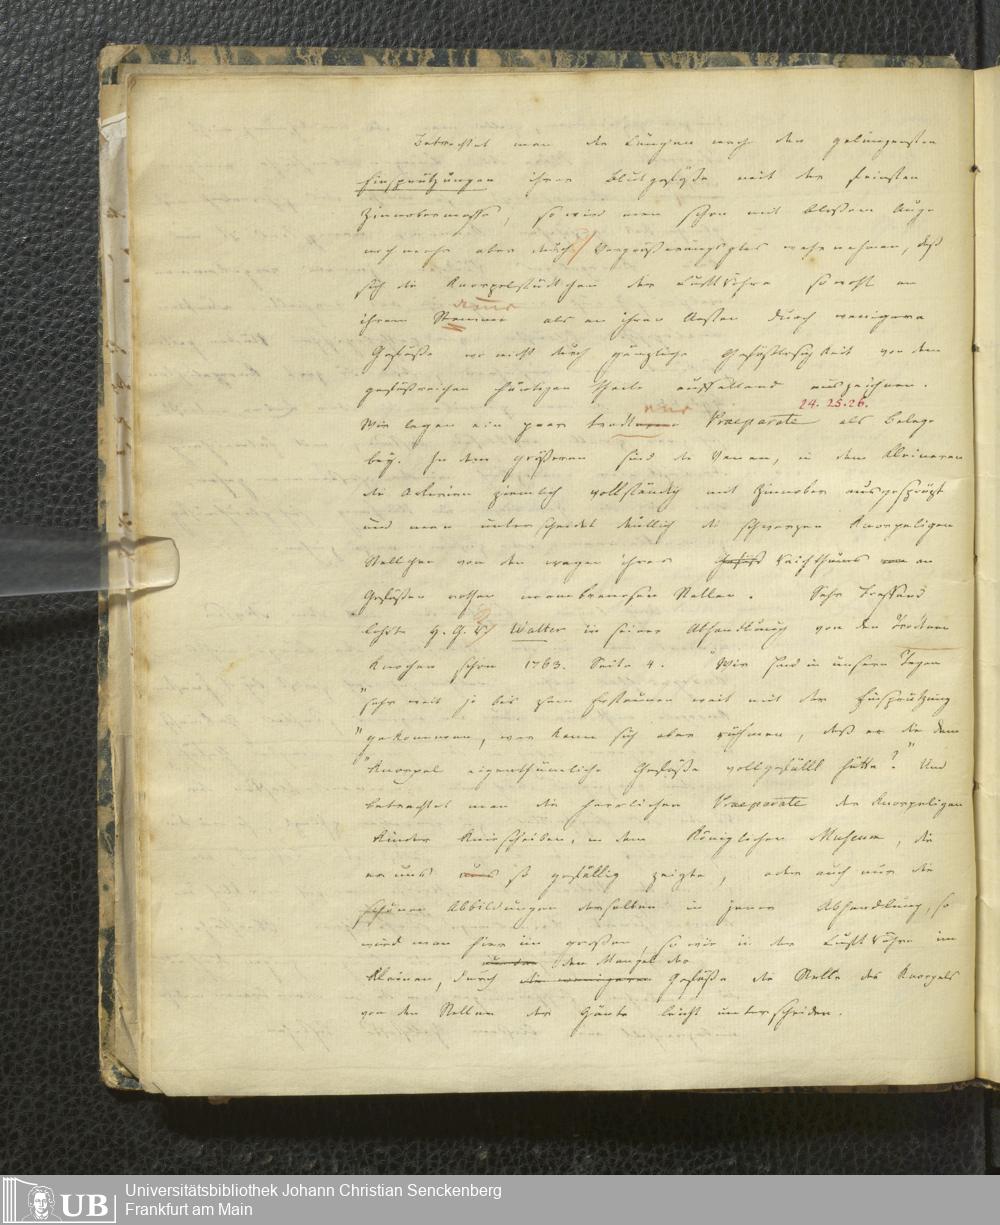 Betrachtet man die Lungen nach den gelungensten
Einsprützungen ihrer Blutgefäße mit der feinsten
Zinnobermasse, so wird man schon mit bloßem Auge
noch mehr aber durchs Vergrößerungsglas wahrnehmen, daß
sich die Knorpelstückchen der Luftröhre sowohl an
ihrem Stamme als an ihren Aesten durch wenigere
Gefäße wo nicht durch gänzliche Gefäßlosigkeit von dem
gefäßreichen häutigen Theile auffallend auszeichnen.
24. 25. 26.
Wir legen ein paar Praeparate als Belege
bey. In dem größeren sind die Venen, in dem kleineren
die Arterien ziemlich vollständig mit Zinnober ausgesprüzt
und man unterscheidet deutlich die schwarzen knorpeligen
Stellchen von den wegen ihres Reichthums an
Gefäßen rothen membranosen Stellen. Sehr treffend
sagte H. G. R. Walter in seiner Abhandlung von den trocknen
Knochen schon 1763. Seite 4. "Wir sind in unsern Tagen
"sehr weit ja bis zum Erstaunen weit mit der Einsprützung
"gekommen, wer kann sich aber rühmen, daß er die dem
"Knorpel eigenthümliche Gefäße vollgefüllt hätte?" Und
betrachtet man die herrlichen Praeparate der knorpeligen
Kinder Kniescheiben, in dem Königlichen Museum, die
er uns so gefällig zeigte, oder auch nur die
schönen Abbildungen derselben in jener Abhandlung, so
wird man hier im großen, so wie in der Luftröhre im
den Mangel der
kleinen, durch die wenigeren Gefäße die Stelle des Knorpels
von den Stellen der Häute leicht unterscheiden.
UB
Universitätsbibliothek Johann Christian Senckenberg
Frankfurt am Main